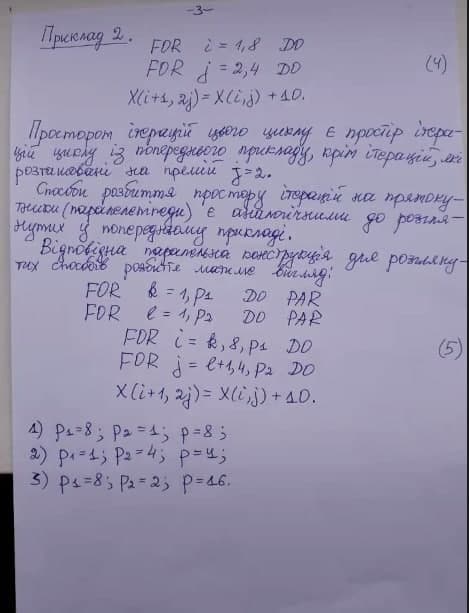 -3-
Приклад 2.
FOR i = 1,8 DO
FOR j = 2,4 DO (4)
X(i+1, 2j) = X(i,j) + 10.
Простором ітерацій цього циклу є простір ітера-
цій циклу із попереднього прикладу, крім ітерацій, які
розташовані на прямій j=2.
Способи розбиття простору ітерацій на прямоку-
тники (паралелепіпеди) є аналогічними до розгля-
нутих у попередньому прикладі.
Відповідна паралельна конструкція для розгляну-
тих способів розбиття матиме вигляд:
FOR k = 1, P1 DO PAR
FOR l = 1, P2 DO PAR
FOR i = k, 8, P1 DO
FOR j = l+1, 4, P2 DO (5)
X(i+1, 2j) = X(i,j) + 10.
1) P1=8; P2=1; P=8;
2) P1=1; P2=4; P=4;
3) P1=8; P2=2; P=16.